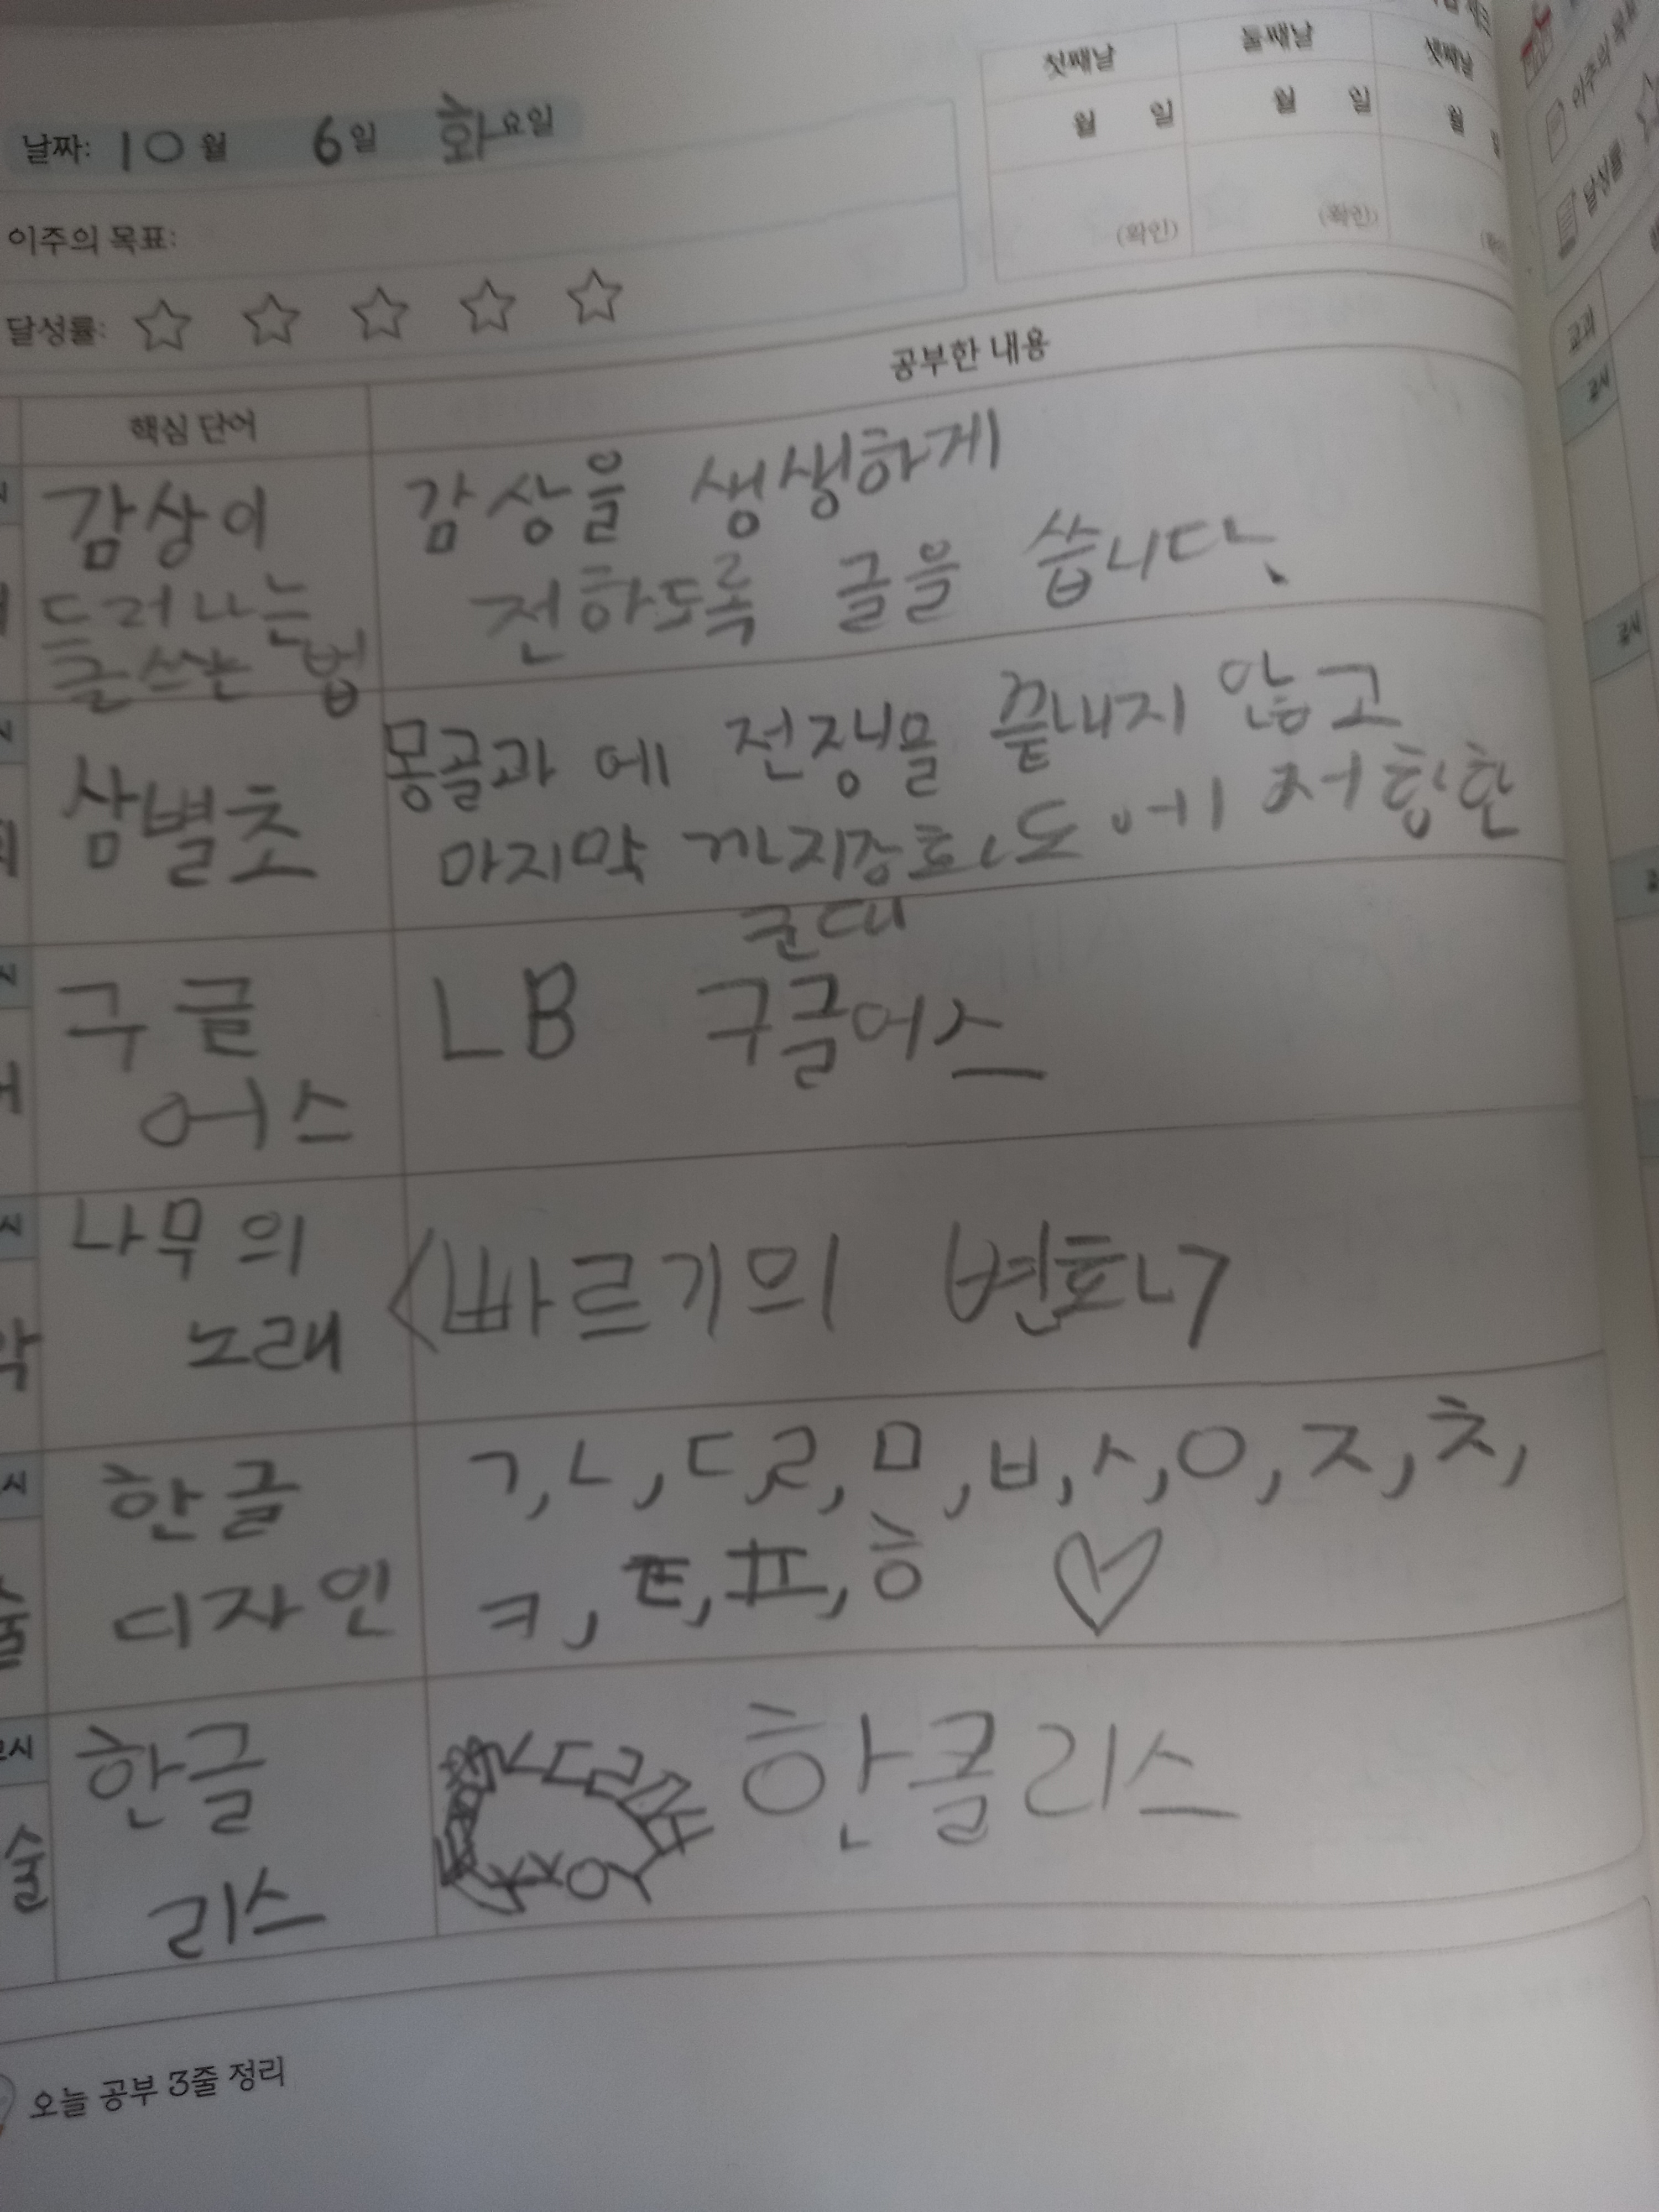 날짜: 10월 6일 화요일
이주의 목표:
달성률:
첫째날 둘째날 셋째날
월 일 월 일 월
(확인) (확인)
핵심 단어 공부한 내용
감상이
드러나는
글쓰는 법
감상을 생생하게
전하도록 글을 씁니다.
삼별초
몽골과 에 전쟁을 끝내지 않고
마지막 까지 도에
군대
구글
어스
LB 구글어스
나무의
노래
<빠르기의 변화>
한글
디자인
ㄱ, ㄴ, ㄷ, ㄹ, ㅁ, ㅂ, ㅅ, ㅇ, ㅈ, ㅊ,
ㅋ, ㅌ, ㅍ, ㅎ
한글
리스
한글리스
오늘 공부 3줄 정리
이주의
달성률
교과